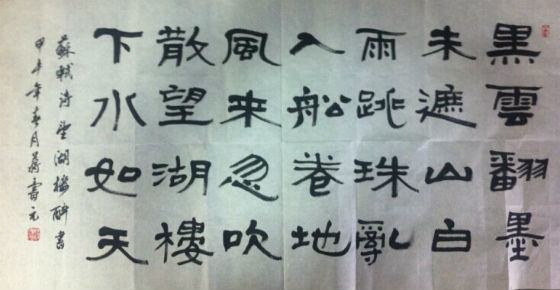 黑雲翻墨
未遮山白
雨跳珠亂
入船卷地
風来忽吹
散望湖樓
下水如天
蘇軾詩望湖樓醉書
甲午年春月